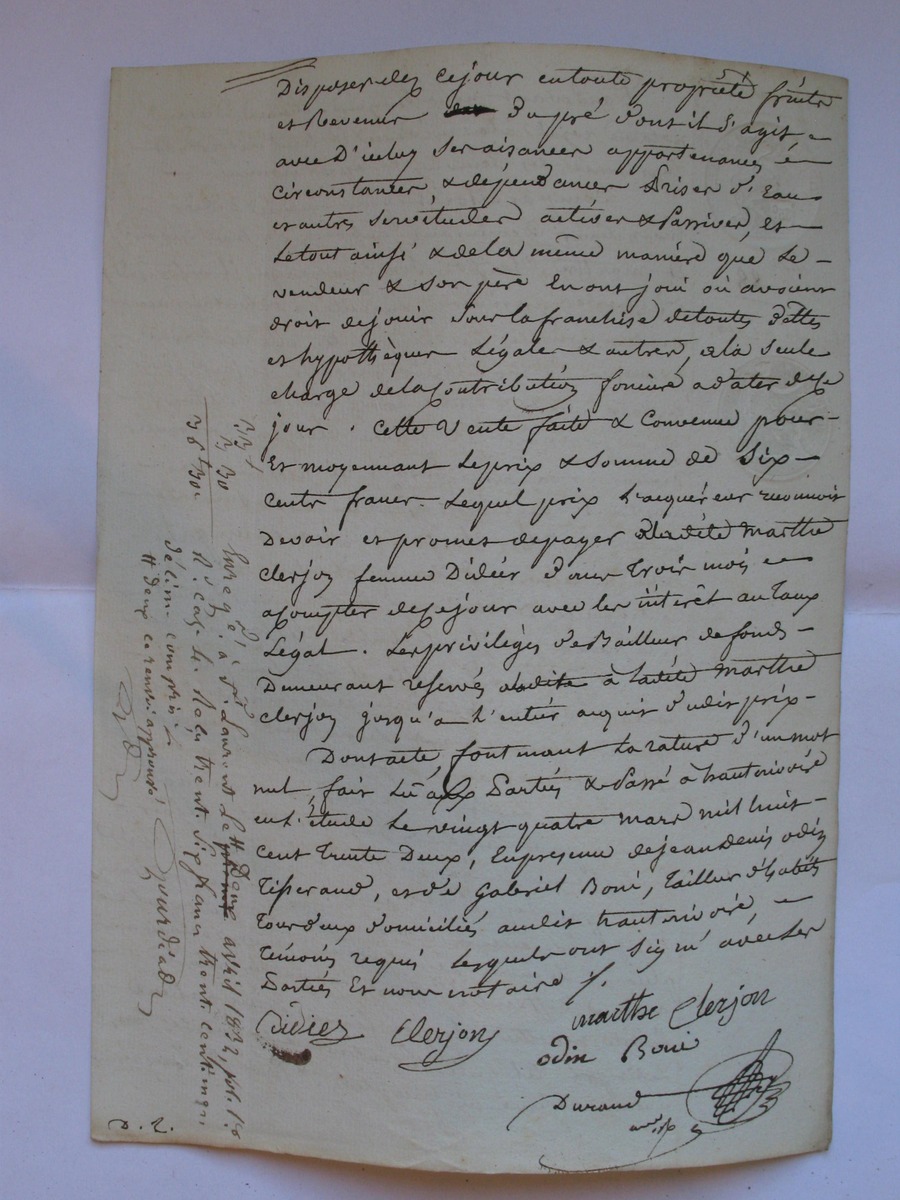 Disposer dez ce jour en toute propriété fruits
et Revenus du pré dont il s'agit
avec D'iceluy ses aisances appartenances
circonstances & dépendances Prises d'Eau
et autres servitudes actives & Passives, et
le tout ainsi & de la même manière que le
vendeur & son père En ont joui ou avoient
droit de jouir sous la franchise de toutes dettes
et hypothèques Légales & autres, à la seule
charge de la Contribution foncière a dater de ce
jour. Cette Vente faite & Convenue pour
Et moyennant Le prix & Somme de Six
Cents francs. Lequel prix L'acquéreur reconnoit
Devoir et promet de payer à ladite Marthe
Clerjon femme Didier dans Trois mois
a compter de ce jour avec les intérêt au Taux
Légal. Les privilèges de Bailleur de fonds
Demeurant reservés à ladite Marthe
Clerjon jusqu'a L'entier acquit dudit prix
Dont acte, La rature d'un mot
nul, fait Lu aux Parties & Passé à hauterivoire
en L'étude Le vingt quatre mars mil huit
cent Trente Deux, En presence de jean Denis odin
Tisserand, et de Gabriel Boni, Tailleur d'habits
Tous deux domiciliés audit hauterivoire,
Témoins requis Lesquels ont signé avec Les
Parties Et nous notaire
Didier Clerjon marthe Clerjon
odin Boni
Durand
D. 2.
33 f
3 30
36 f 30 c
Enreg.é à St Laurent Le Deux avril 1832, fol. 
R. Reçu trente six francs trente centimes
décime compris
# Deux ce renvoi approuvé